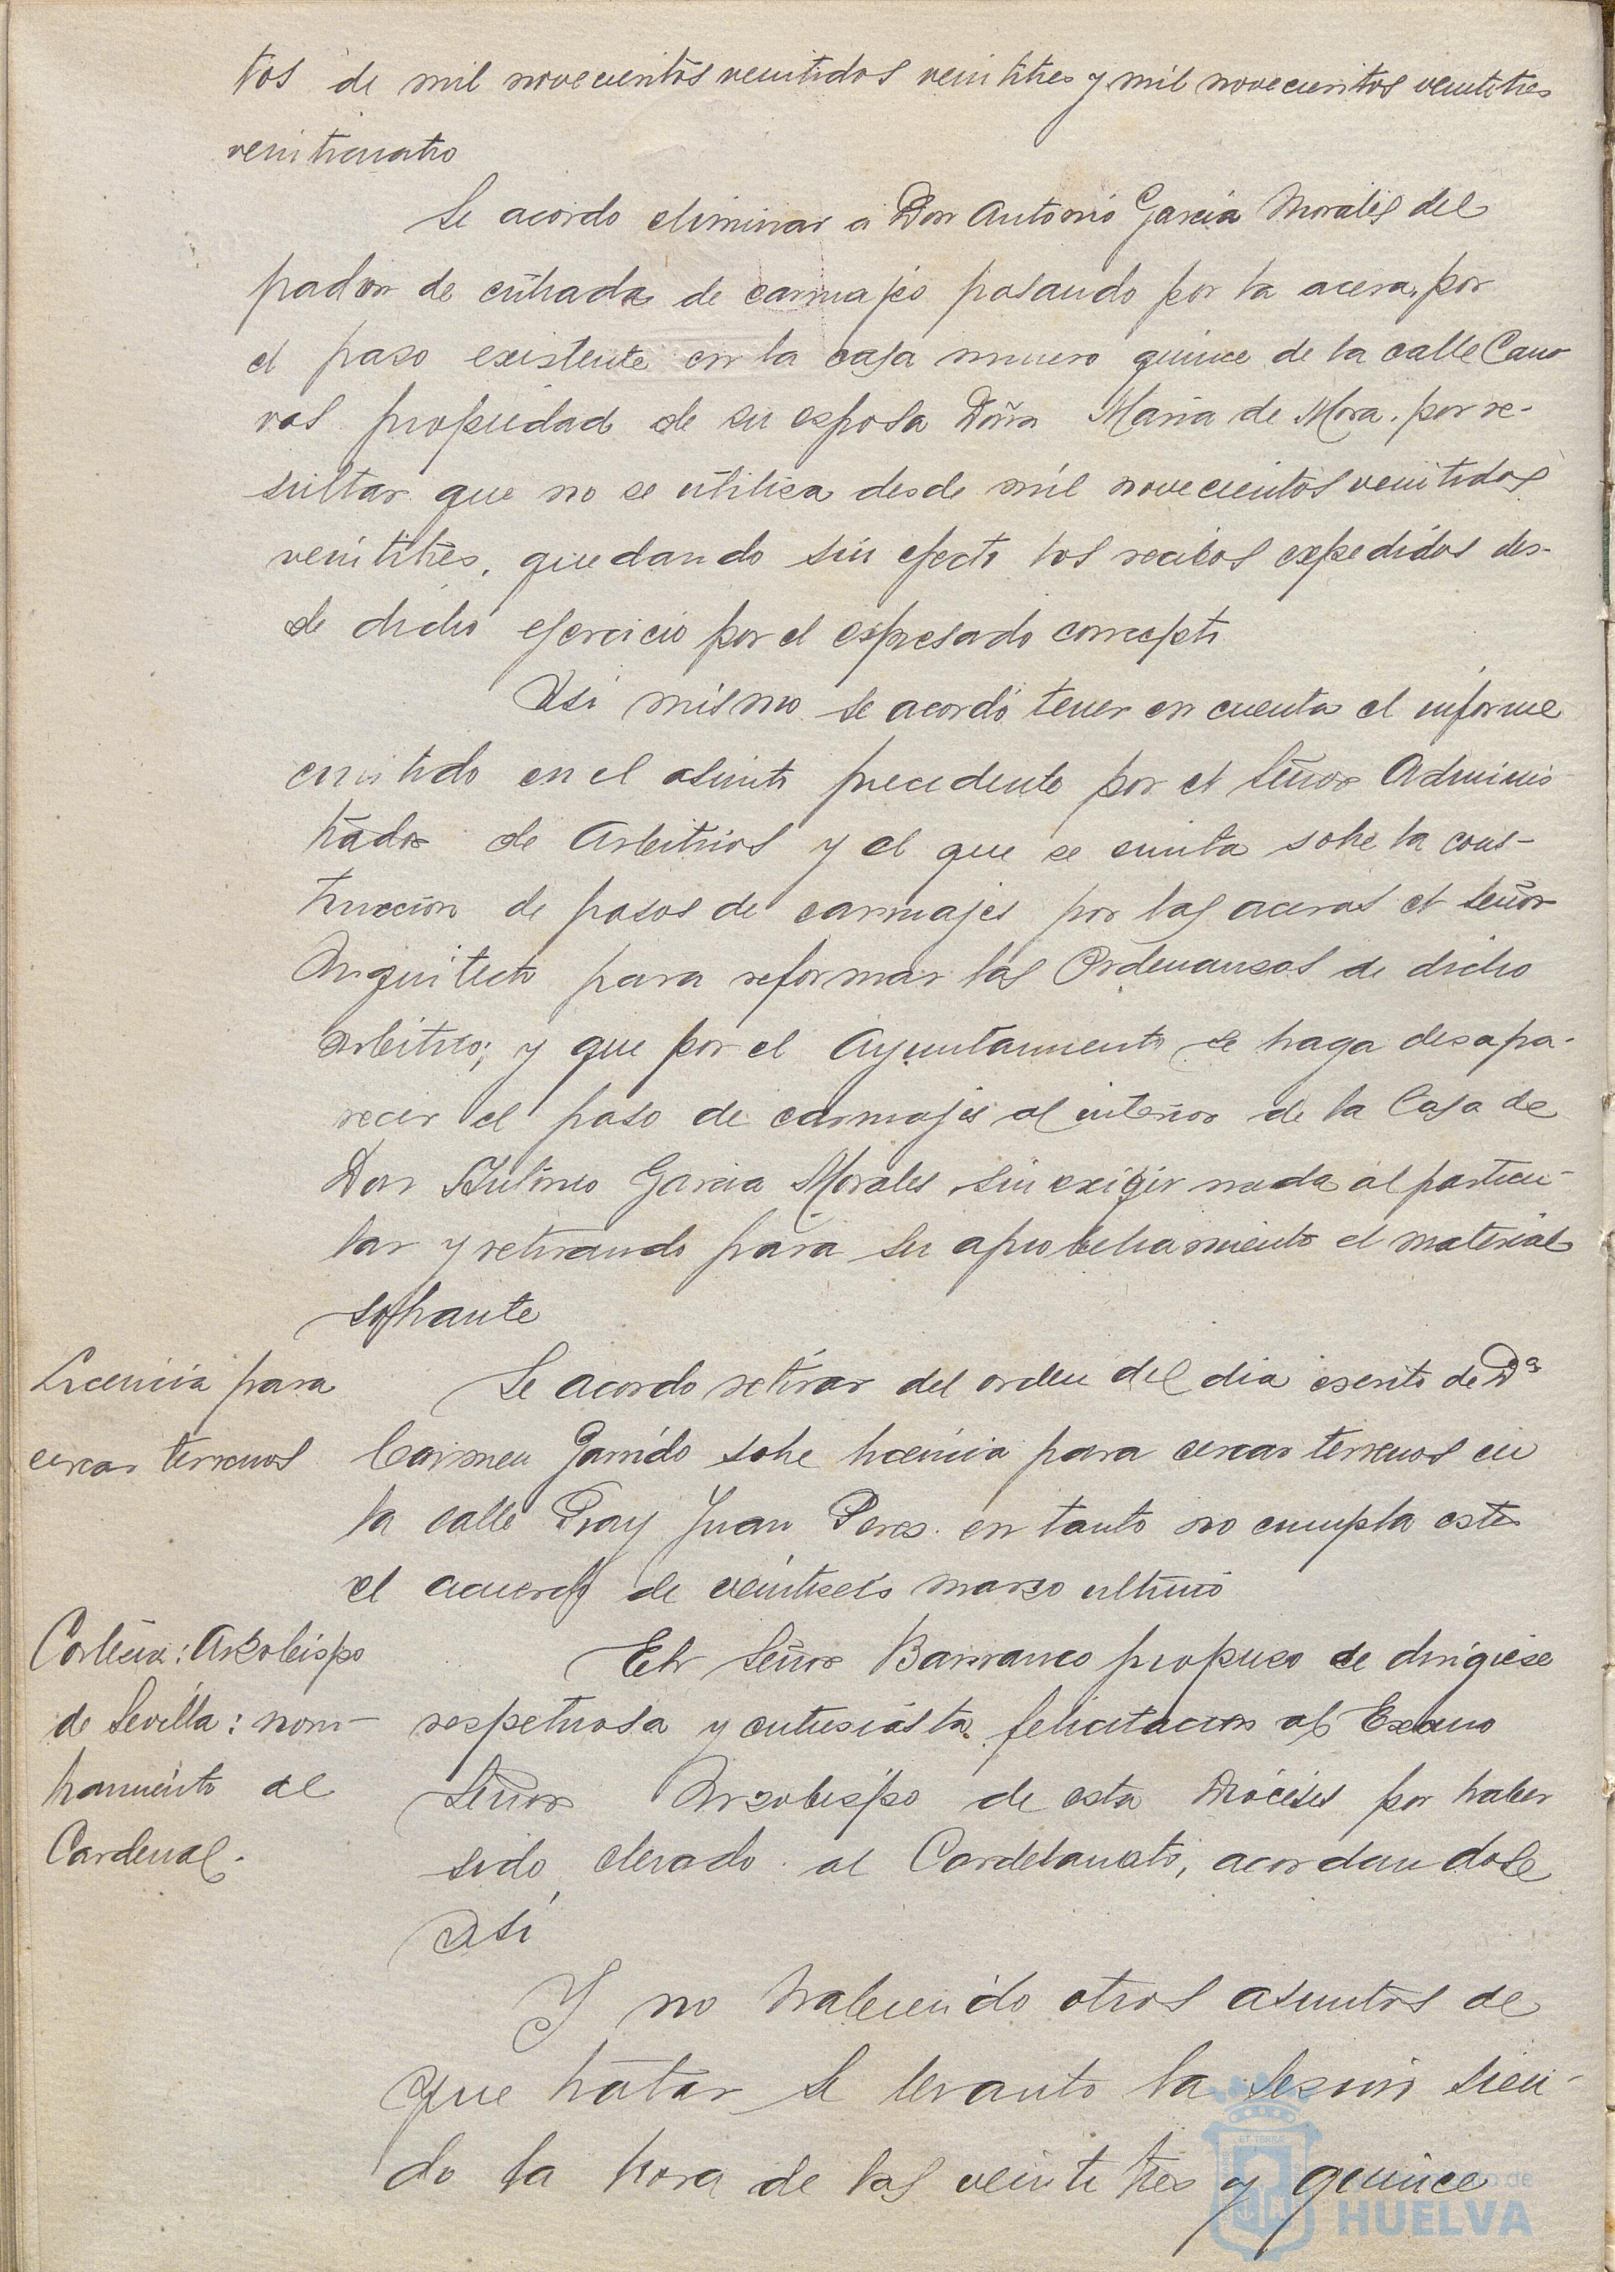 tos de mil novecientos veintidos veintitres y mil novecientos veintitres
veinticuatro
Se acordo eliminar a Don Antonio García Morales del
padron de entrada de carruajes pasando por la acera, por
el paso existente en la casa numero quince de la calle Cano
vas propiedad de su esposa Doña Maria de Mora. por re-
sultar que no se utiliza desde mil novecientos veintidos
veintitres, quedando sin efecto los recibos expedidos des-
de dicho ejercicio por el espresado concepto
Asi mismo se acordó tener en cuenta el informe
emitido en el asunto precedente por el Señor Adminis
trador de Arbitrios y el que se emita sobre la cons-
truccion de pasos de carruajes por las aceras el señor
Arquitecto para reformar las Ordenanzas de dicho
arbitrio; y que por el Ayuntamiento se haga desapa-
recer el paso de carruajes al interior de la Casa de
Don Antonio Garcia Morales sin exigir nada al particu-
lar y retirando para su aprobechamiento el material
sobrante
Licencia para
cercar terrenos
Se acordo retirar del orden del dia escrito de Dª
Carmen Garrido sobre licencia para cercar terrenos en
la calle Fray Juan Perez en tanto no cumpla este
el acuerdo de veintiseis marzo ultimo
Cortesia: Arzobispo
de Sevilla: nom-
bramiento de
Cardenal.
El Señor Barranco propuso se dirigiese
respetuosa y entusiasta felicitacion al Excmo
Señor Arzobispo de esta Diócesis por haber
sido elevado al Cardelanato, acordandose
asi
Y no habiendo otros asuntos de
que tratar se levanto la sesion sien-
do la hora de las veinte tres y quince
HUELVA